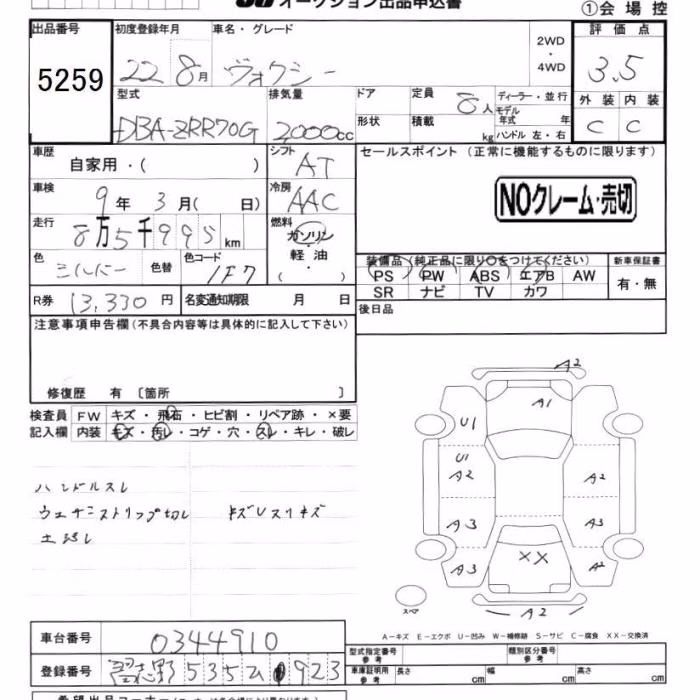 オークション出品申込書
①会場控
出品番号 5259
初度登録年月 22年 8月
車名・グレード ヴォクシー
2WD・4WD
評価点 3.5
外装 C 内装 C
型式 DBA-ZRR70G
排気量 2,000cc
ドア 形状
定員 8人 積載 kg
ディーラー・並行
モデル年式 年
ハンドル 左・右
車歴 自家用・( )
シフト AT
セールスポイント (正常に機能するものに限ります)
NOクレーム・売切
車検 9年 3月( 日)
冷房 AAC
走行 8万5千995km
燃料 ガソリン・軽油・( )
色 シルバー 色替
色コード 1F7
装備品 (純正品に限り○をつけてください)
PS PW ABS エアB AW
SR ナビ TV カワ
新車保証書 有・無
R券 13,330円
名変通知期限 月 日
後日品
注意事項申告欄(不具合内容等は具体的に記入して下さい)
修復歴 有 〔箇所 〕
検査員記入欄
FW キズ・飛石・ヒビ割・リペア跡・×要
内装 キズ・汚レ・コゲ・穴・スレ・キレ・破レ
ハンドルスレ
ウェザーストリップ切レ キズUスリキズ
A2
A1
U1
U1
A2 A2
A3 A3
XX
A3 A2
A2
スペア
A-キズ E-エクボ U-凹み W-補修跡 S-サビ C-腐食 XX-交換済
車台番号 0344910
登録番号 習志野 535 ム 923
型式指定番号 参考
類別区分番号 参考
車庫証明用 参考 長さ cm 幅 cm 高さ cm